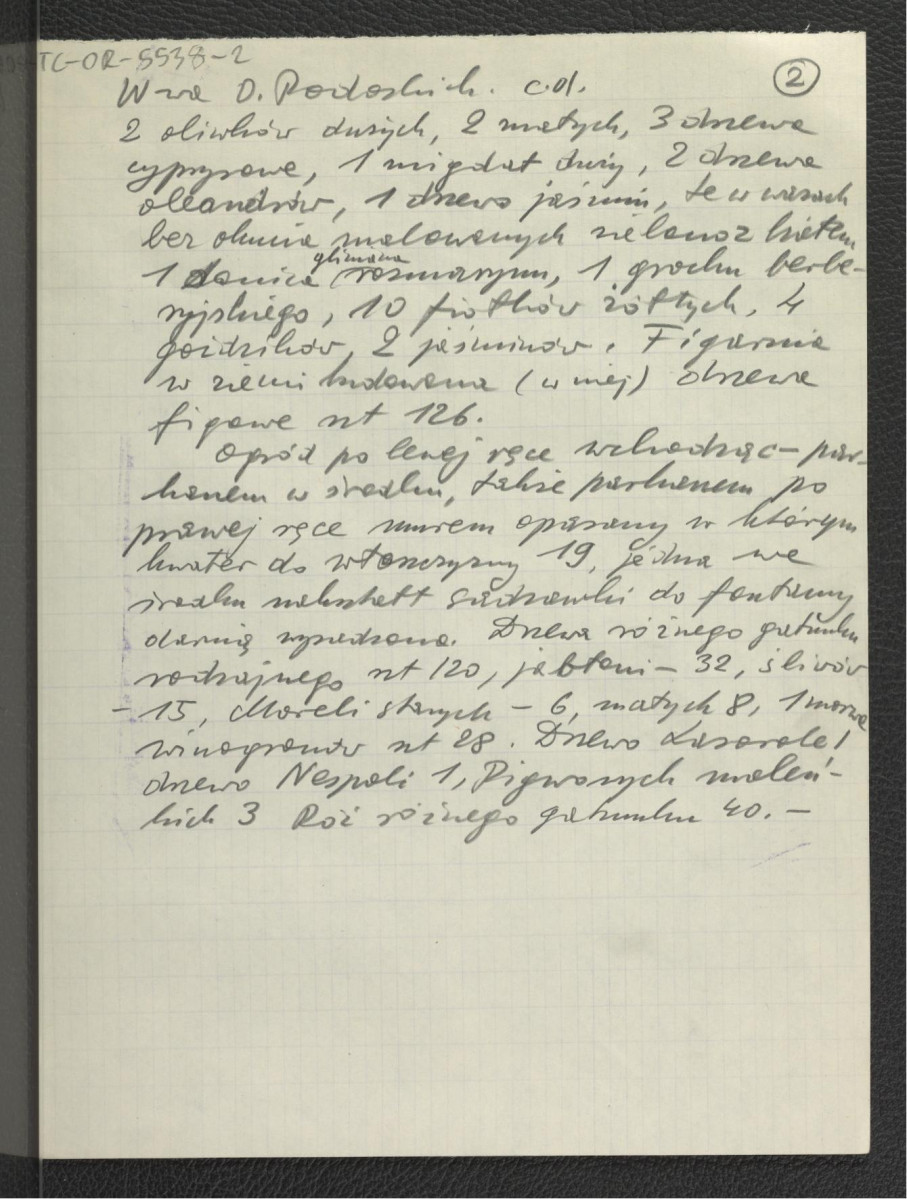 TG-OR-5538-2
W-wa O. Radoskich. c.d. 2
2 oliwków dużych, 2 małych, 3 drzewa
cyprysowe, 1 migdał duży, 2 drzewa
oleandrów, 1 drzewo jaśmin, te w wazach
bez okucia malowanych zielono z białem
1 donica gliniana rozmarynu, 1 grochu berbe-
ryjskiego, 10 fiołków żółtych, 4
goździków, 2 jaśminów. Figarnia
w ziemi budowana (w niej) drzewa
figowe szt 126.
Ogród po lewej ręce wchodząc – par-
kanem w środku, także parkanem po
prawej ręce murem opasany w którym
kwater do włoszczyzny 19, jedna we
środku nakształt sadzawki do fontanny
darnią wysadzona. Drzewa różnego gatunku
rodzajnego szt 120, jabłoni – 32, śliwów
– 15, Moreli starych – 6, małych 8, 1 morwa
winogronów szt 28. Drzewo Lazarole 1
drzewo Nespoli 1, Pigwowych maleń-
kich 3 Róż różnego gatunku 40. –